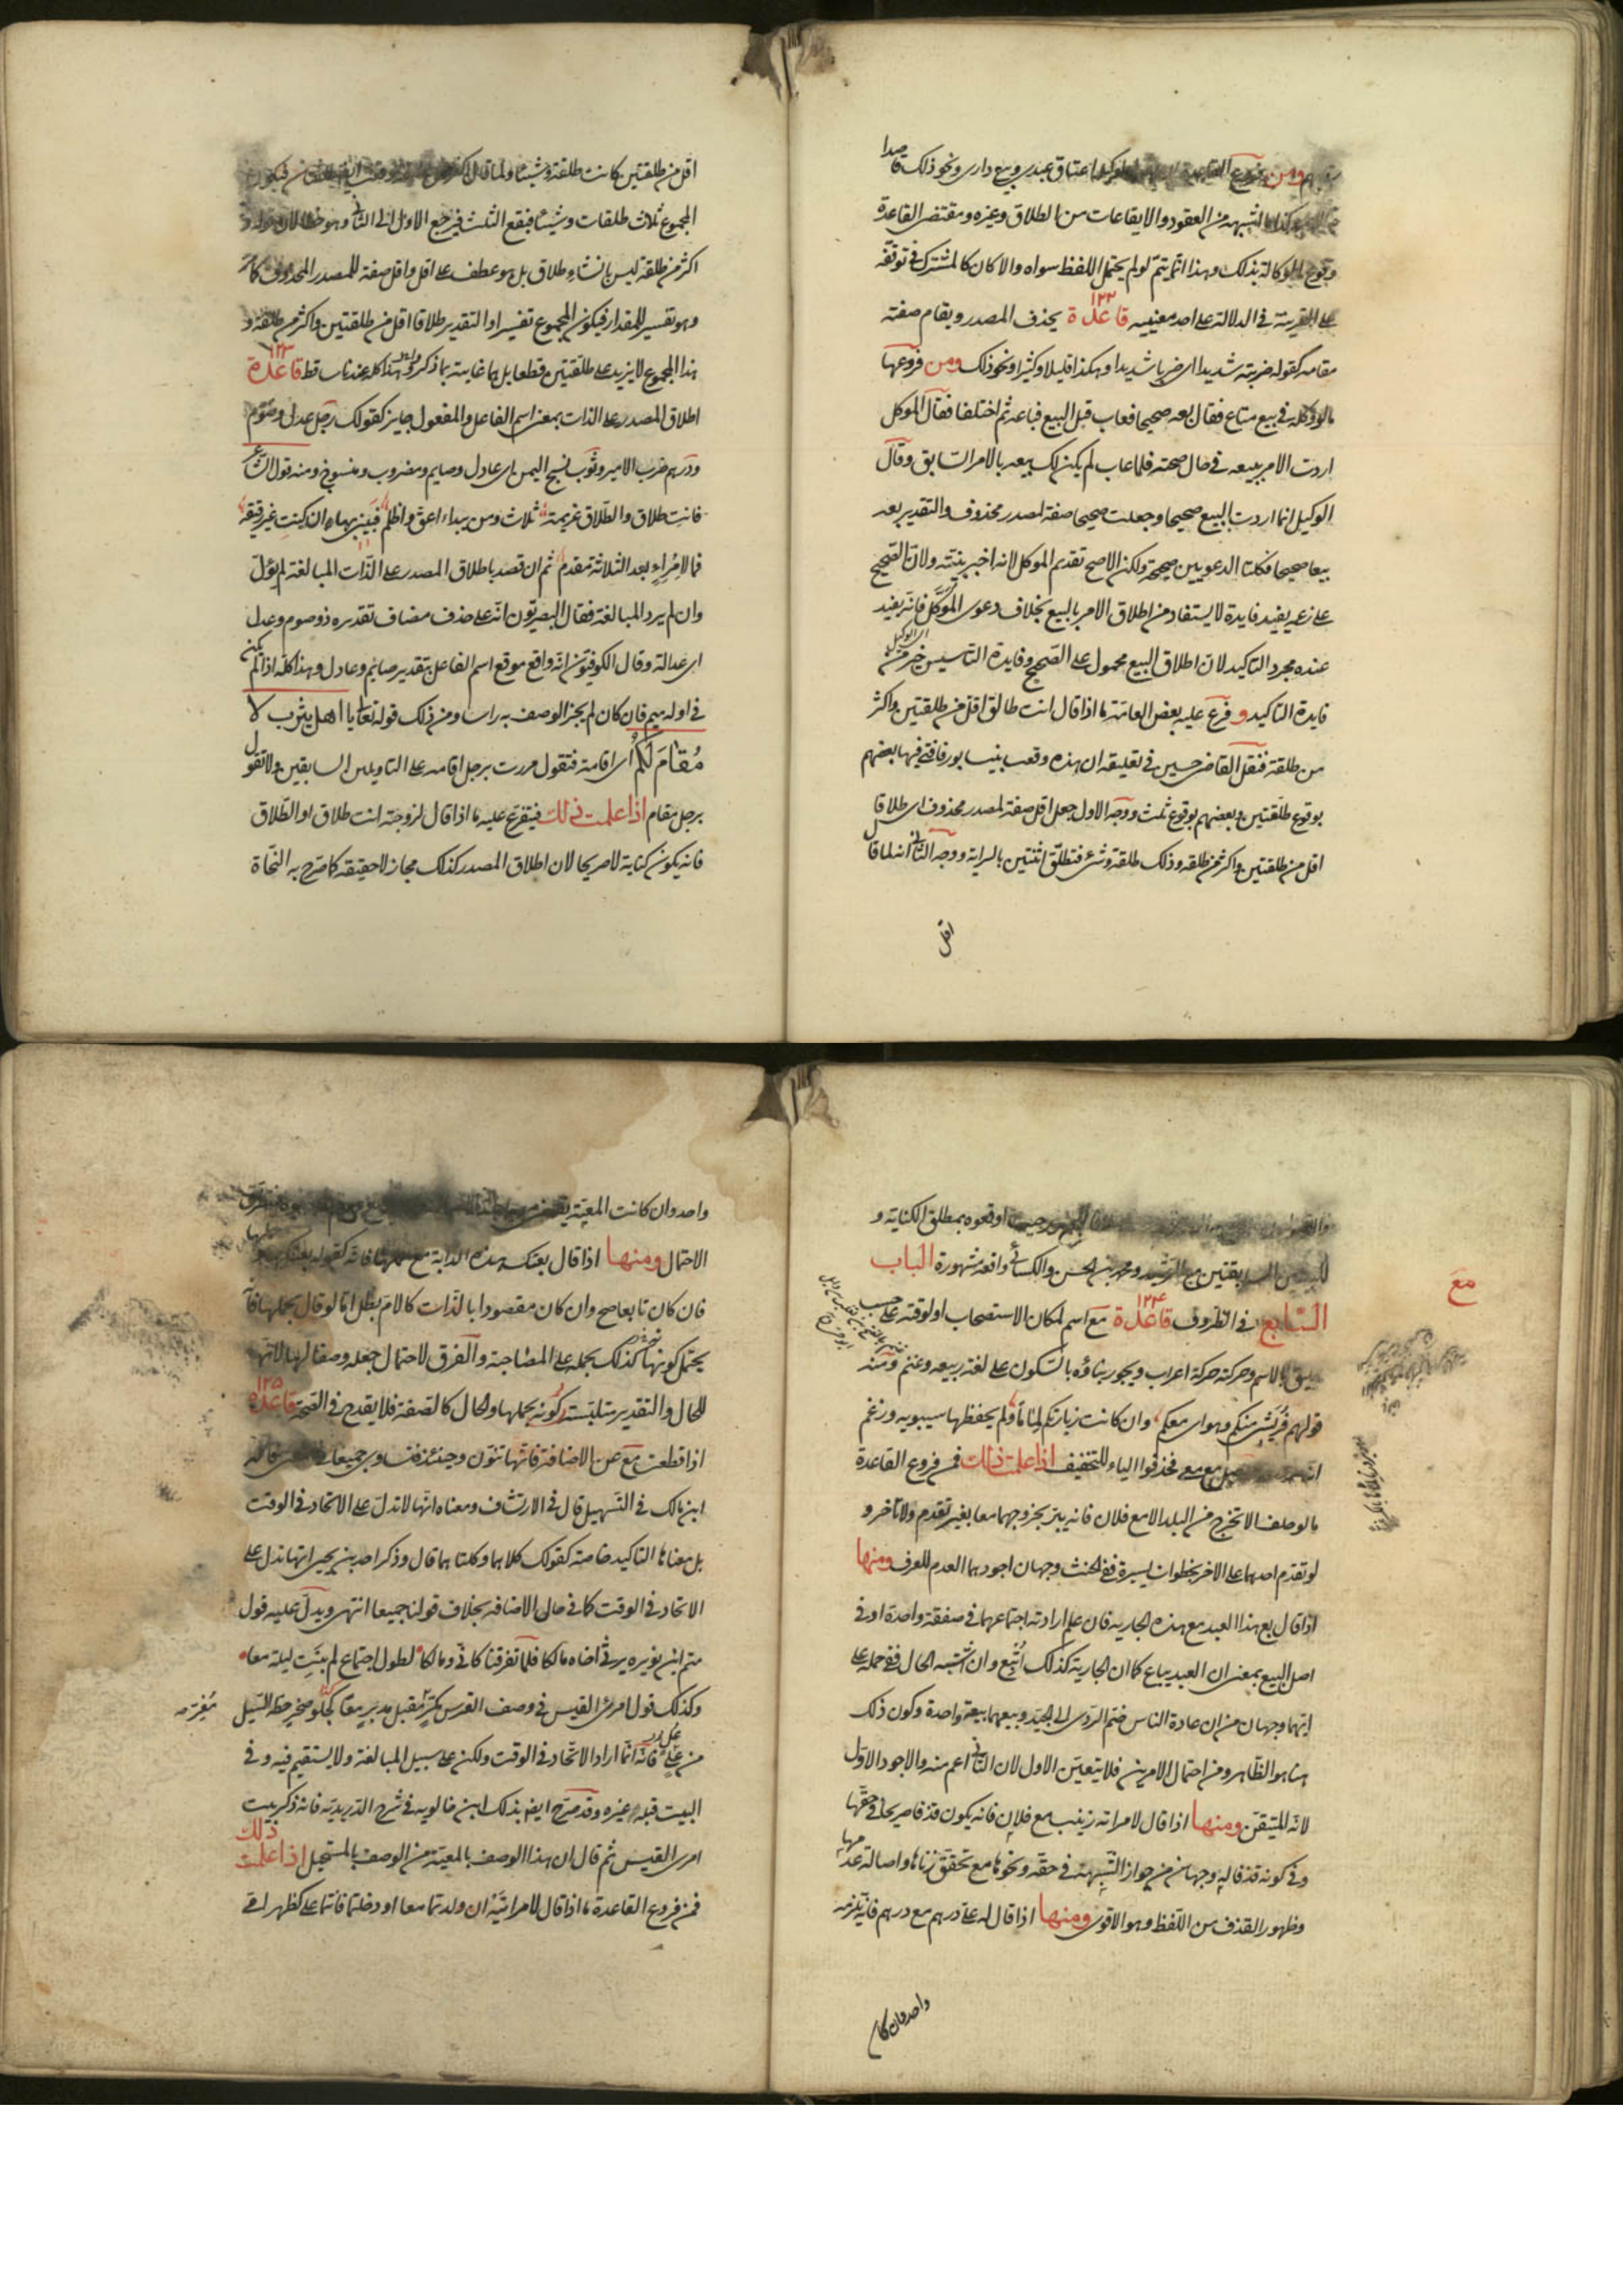 ومن فروع القاعدة اعتاق عبدي وبيع داري ونحو ذلك قاصدا
الشبهه من العقود والايقاعات من الطلاق وغيره ومقتضى القاعدة
وقوع الوكالة بذلك وهذا انما يتم لو لم يحتمل اللفظ سواه والا كان كالمشترك في توقفه
على القرينة في الدلالة على احد معنييه قاعدة ١٢٢ يحذف المصدر ويقام صفته
مقامه كقوله ضربته شديدا اى ضربا شديدا وهكذا قليلا وكثيرا ونحو ذلك ومن فروعها
ما لو وكله في بيع متاع فقال بعه صحيحا فعاب قبل البيع فباعه ثم اختلفا فقال الموكل
اردت الامر ببيعه في حال صحته فلما عاب لم يكن لك بيعه بالامر السابق وقال
الوكيل انما اردت البيع صحيحا وجعلت صحيحا صفة لمصدر محذوف والتقدير بعه
بيعا صحيحا فكلتا الدعويين صحيحة ولكن الاصح تقديم الموكل لانه اخبر بنيته ولان الصحيح
على زعمه يفيد فايدة لا يستفاد من اطلاق الامر بالبيع بخلاف دعوى الموكل فانه يفيد
اى الوكيل
عنده مجرد التاكيد لان اطلاق البيع محمول على الصحيح وفايدة التاسيس خير من
فايدة التاكيد و فرع عليه بعض العامة ما اذا قال انت طالق اقل من طلقتين واكثر
من طلقة فنقل القاضي حسين في تعليقه ان هذه وقعت بنيسابور فافتى فيها بعضهم
بوقوع طلقتين وبعضهم بوقوع ثلث ووجه الاول جعل اقل صفة لمصدر محذوف اى طلاقا
اقل من طلقتين واكثر من طلقه وذلك طلقة وشئ فتطلق اثنتين بالسراية ووجه الثاني انه لما قال
اقل
اقل من طلقتين كانت طلقة وشيئا ولما قال فيكون
المجموع ثلاث طلقات وشيئا فيقع الثلث فيرجع الاول الى الثاني وهو خطا لان قوله و
اكثر من طلقة ليس بانشاء طلاق بل هو عطف على اقل واقل صفة للمصدر المحذوف كما مر
وهو تفسير للمقدار فيكون المجموع تفسيرا والتقدير طلاقا اقل من طلقتين واكثر من طلقة و
هذا المجموع لا يزيد على طلقتين قطعا بل هما غايته بما ذكروه وهذا كله عندنا ساقط قاعدة ١٢٣
اطلاق المصدر على الذات بمعنى اسم الفاعل والمفعول جايز كقولك رجل عدل وصوم
ودرهم ضرب الامير وثوب نسج اليمن اى عادل وصايم ومضروب ومنسوج ومنه قول الشاعر
فانت طلاق والطلاق عزيمة ثلاث ومن يبداء اعق واظلم فبيني بها ان كنت غير رفيقة
فما لامرئ بعد الثلاثة مقدم ثم ان قصد باطلاق المصدر على الذات المبالغة لم يؤل
وان لم يرد المبالغة فقال البصريون انه على حذف مضاف تقديره ذو صوم وعدل
اى عدالة وقال الكوفيون انه واقع موقع اسم الفاعل بتقدير صايم وعادل وهذا كله اذا لم يكن
في اوله ميم فان كان لم يجز الوصف به راسا ومن ذلك قوله تعالى يا اهل يثرب لا
مُقامَ لَكُم اى اقامة فتقول مررت برجل اقامه على التاويلين السابقين ولا تقول
برجل مقام اذا علمت ذلك فيتفرع عليه ما اذا قال لزوجته انت طلاق او الطلاق
فانه يكون كناية لا صريحا لان اطلاق المصدر كذلك مجاز لا حقيقة كما صرح به النحاة
اوقعوه بمطلق الكناية و
للبيتين السابقتين مع الرشيد ومحمد بن الحسن والكسائي واقعة مشهورة الباب
مع
السابع في الظروف قاعدة ١٢٤ مع اسم لمكان الاستصحاب او لوقته على حسب
يليق بالاسم وحركته حركة اعراب ويجوز بناؤه بالسكون على لغة ربيعه وغنم ومنه
قولهم فريشي منكم وهواى معكم وان كانت زيارتكم لماما ولم يحفظها سيبويه وزعم
مع معي فحذفوا الياء للتخفيف اذا علمت ذلك فمن فروع القاعدة
ما لو حلف الا تخرج من البلد الا مع فلان فانه يبر بخروجهما معا بغير تقدم ولا تاخر و
لو تقدم احدهما على الاخر بخطوات يسيرة ففي الحنث وجهان اجودهما العدم للعرف ومنها
اذا قال بع هذا العبد مع هذه الجاريه فان علم ارادته اجتماعهما في صفقة واحدة او في
اصل البيع بمعنى ان العبد يباع كما ان الجارية كذلك اتبع وان اشتبه الحال ففي حمله على
ايهما وجهان من ان عادة الناس ضم الردى الى الجيد وبيعهما بيعة واحدة وكون ذلك
هنا هو الظاهر ومن احتمال الامرين فلا يتعين الاول لان الثاني اعم منه والاجود الاول
لانه المتيقن ومنها اذا قال لامراته زنيت مع فلان فانه يكون قذفا صريحا في حقها
وفي كونه قذفا له وجهان من جواز الشبهة في حقه ونحوها مع تحقق زناها واصالة عدمها
وظهور القذف من اللفظ وهو الاقوى ومنها اذا قال له على درهم مع درهم فانه يلزمه
واحد وان كا
واحد وان كانت المعية
الاحتمال ومنها اذا قال بعتك هذه الدابة مع حملها فانه كقوله
فان كان تابعا صح وان كان مقصودا بالذات كالام بطل اما لو قال بحملها فا
يحتمل كونها كذلك بحمله على المصاحبة والفرق لاحتمال جعله وصفا لها لانه
للحال والتقدير متلبسة بحملها والحال كالصفة فلا يقدح في الصحة قاعدة ١٢٥
اذا قطعت مع عن الاضافة فانها تنون وحينئذ فتساوى جميعا في المعنى قاله
ابن مالك في التسهيل قال في الارتشاف ومعناه انها لا تدل على الاتحاد في الوقت
بل معناها التاكيد خاصة كقولك كلاهما وكلتاهما قال وذكر احمد بن يحيى انها تدل على
الاتحاد في الوقت كما في حال الاضافه بخلاف قولنا جميعا انتهى ويدل عليه قول
متمم ابن نويره يرثي اخاه مالكا فلما تفرقنا كاني ومالكا لطول اجتماع لم نبت ليلة معا
وكذلك قول امرئ القيس في وصف الفرس مكر مقبل مدبر معا كجلمود صخر حطه السيل
من عل فانه انما اراد الاتحاد في الوقت ولكن على سبيل المبالغة ولا يستقيم فيه وفي
البيت قبله غيره وقد صرح ايضا بذلك ابن خالويه في شرح الدريدية فانه ذكر بيت
امرى القيس ثم قال ان هذا الوصف بالمعية من الوصف بالمستحيل اذا علمت ذلك
فمن فروع القاعدة ما اذا قال لامراتيه ان ولدتما معا او دخلتما فانتما على كظهر امي